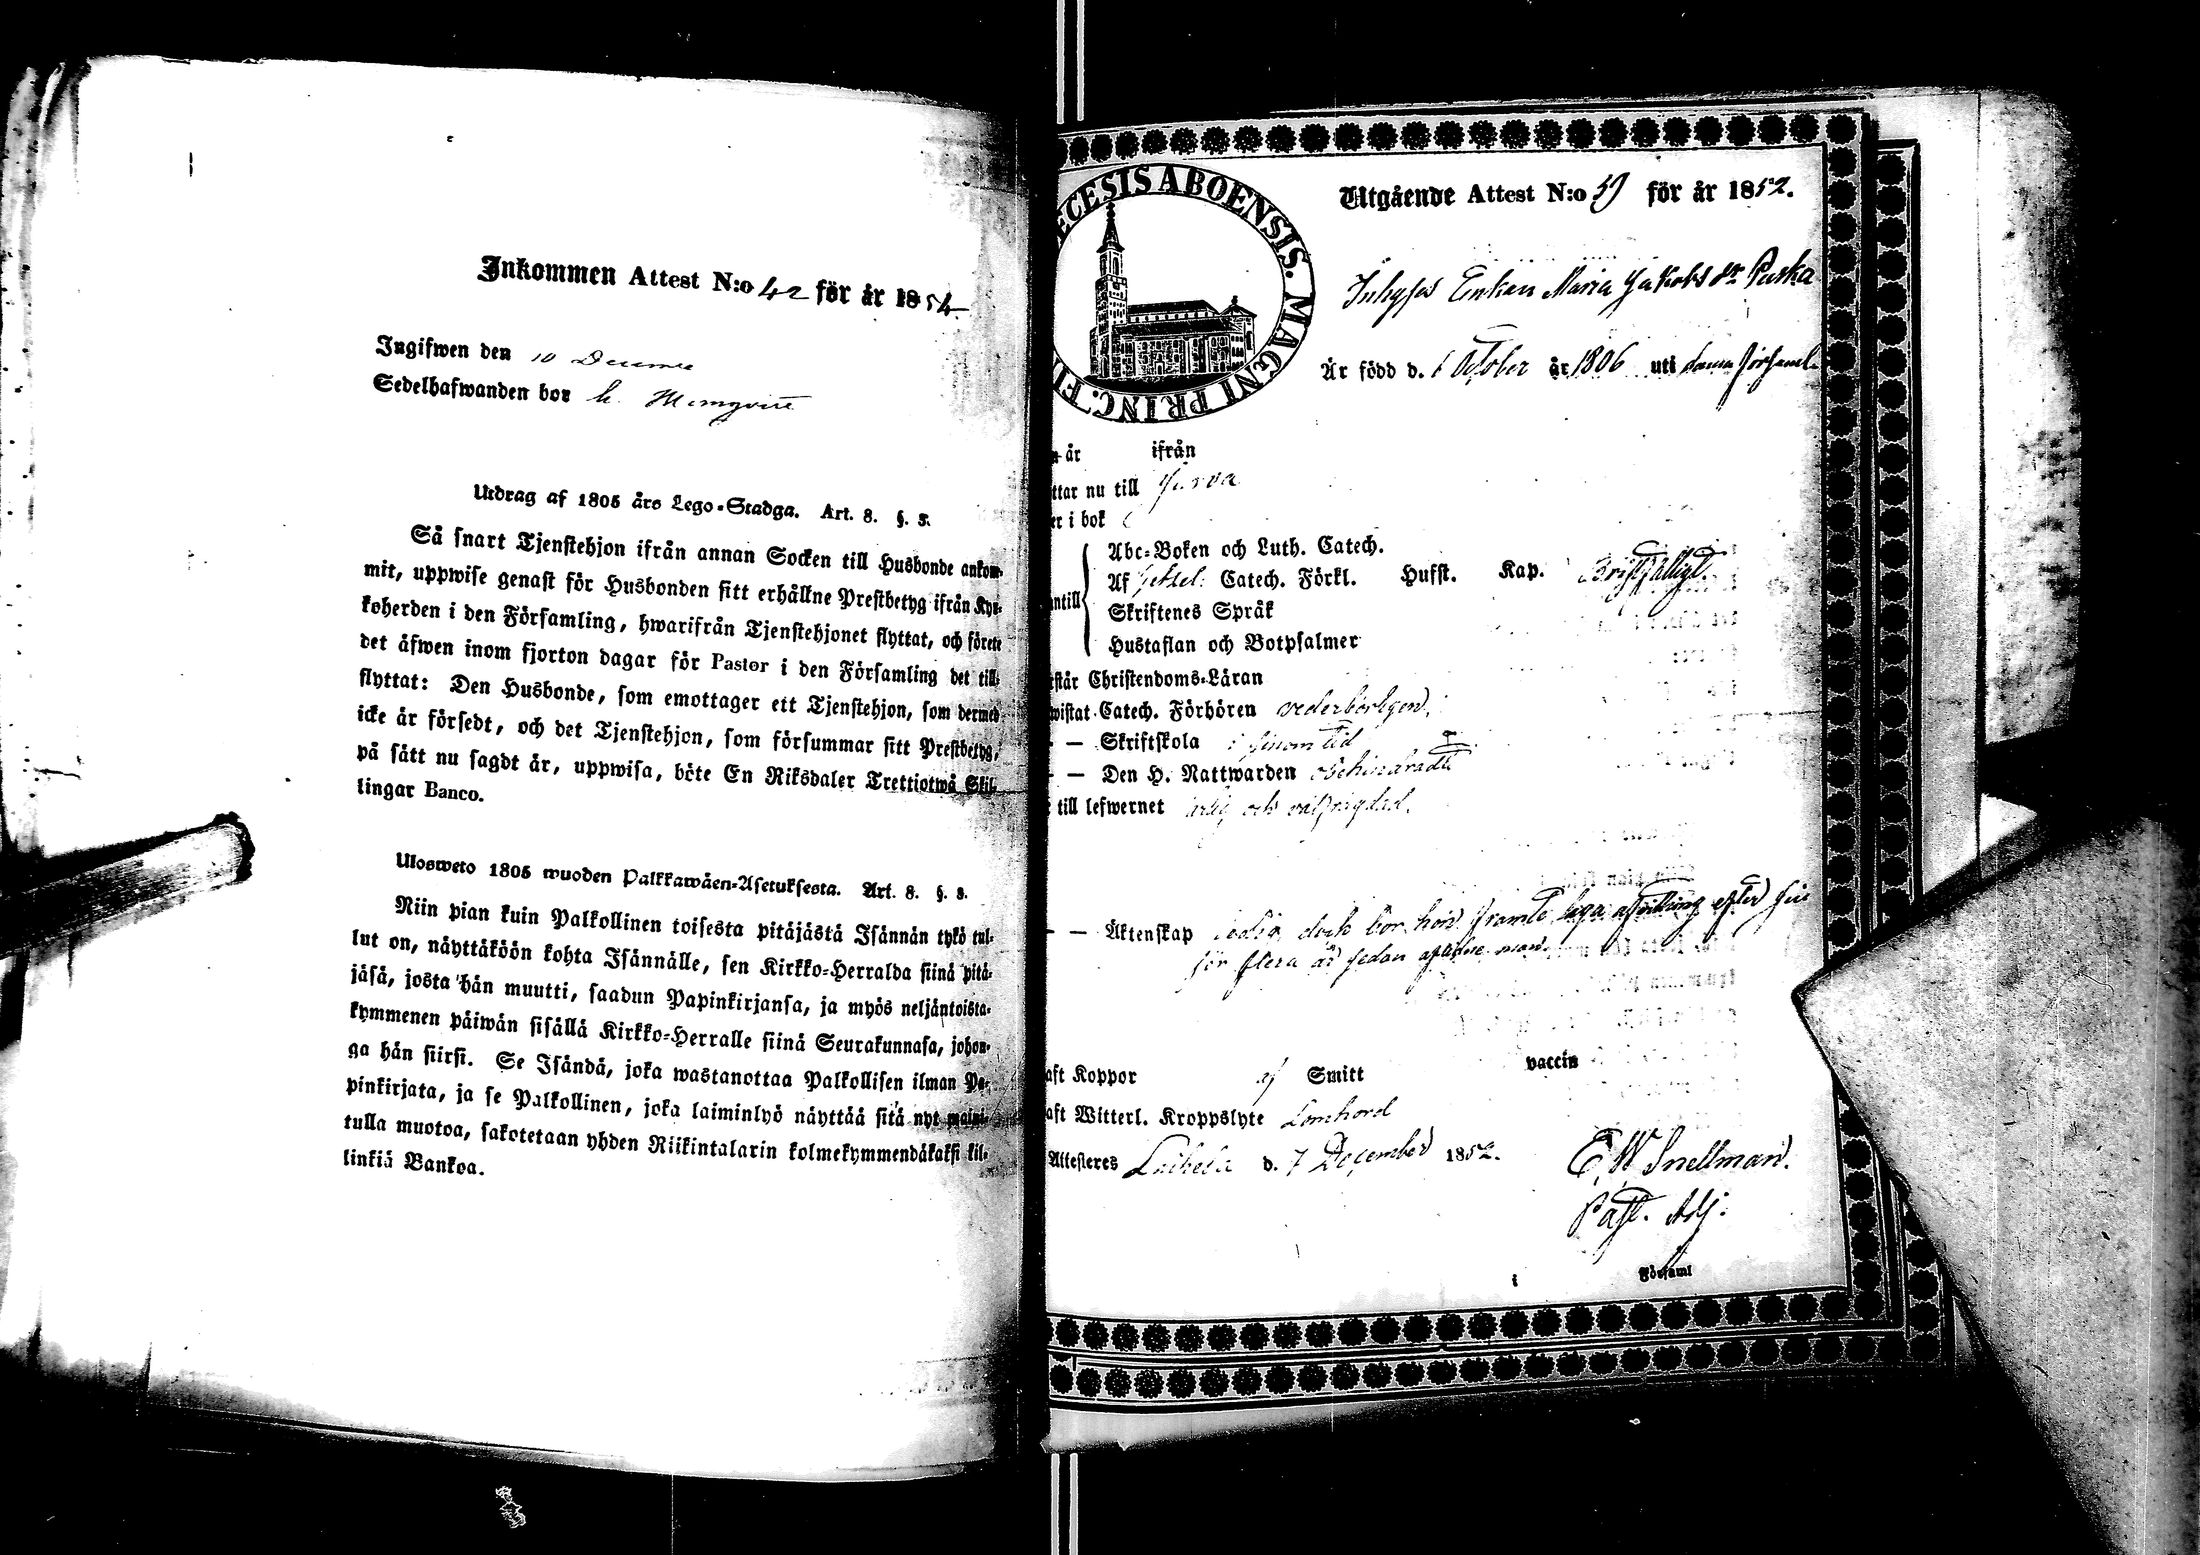 Inkommen Attest N:o 42 för år 1854.
Ingifwen den 10 Decemre
Sedelhafwanden bor
Utdrag af 1805 års Lego-Stadga. Art. 8. §. 3.
Så snart Tjenstehjon ifrån annan Socken till Husbonde ankom-
mit, uppwise genast för Husbonden sitt erhållne Prestbetyg ifrån Kyr-
koherden i den Församling, hwarifrån Tjenstehjonet flyttat, och förete
det äfwen inom fjorton dagar för Pastor i den Församling det till-
flyttat: Den Husbonde, som emottager ett Tjenstehjon, som dermed
icke är försedt, och det Tjenstehjon, som försummar sitt Prestbetyg,
på sätt nu sagdt är, uppwisa, böte En Riksdaler Trettiotwå Skil-
lingar Banco.
Ulosweto 1805 wuoden Palkkawäen-Asetuksesta. Art. 8. §. 3.
Niin pian kuin Palkollinen toisesta pitäjästä Isännän tykö tul-
lut on, näyttäköön kohta Isännälle, sen Kirkko-Herralda siinä pitä-
jäsä, josta hän muutti, saadun Papinkirjansa, ja myös neljäntoista-
kymmenen päiwän sisällä Kirkko-Herralle siinä Seurakunnasa, johon-
ga hän siirsi. Se Isändä, joka wastanottaa Palkollisen ilman Pa-
pinkirjata, ja se Palkollinen, joka laiminlyö näyttää sitä nyt maini-
tulla muotoa, sakotetaan yhden Riikintalarin kolmekymmendäkaksi kil-
linkiä Bankoa.
ECESIS ABOENSIS. MAGNI PRINC. FI
Utgående Attest N:o 59 för år 1852.
Inhyses Enkan Maria Jakobs dr Puska
Är född d. 6 October år 1806 uti denna Församl.
år ifrån
ttar nu till Jurva
er i bok
antill
Abc-Boken och Luth. Catech.
Af Catech. Förkl. Husst. Kap. Bristfälligt.
Skriftenes Språk
Hustaflan och Botpsalmer
rstår Christendoms-Läran
wistat Catech. Förhören vederbörligen.
— — Skriftskola i sinom tid
— — Den H. Nattwarden obehindradt
till lefwernet ärlig och välfrägdad.
— — Äktenskap ledig, dock bör hon framte laga afvittring efter sin
för flera år sedan aflidne man.
aft Koppor af Smitt vaccin
aft Witterl. Kroppslyte
Attesteres Laihela d. 7 December 1852.
E W Snellman.
Past. Adj.
i Församl